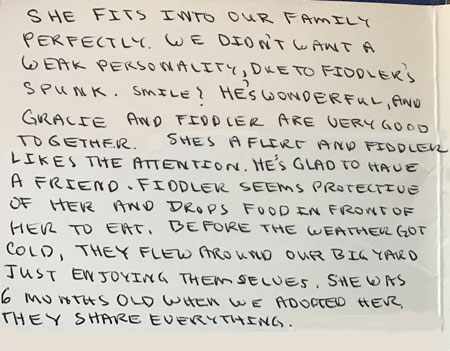 SHE FITS INTO OUR FAMILY
PERFECTLY. WE DIDN'T WANT A
WEAK PERSONALITY, DUE TO FIDDLER'S
SPUNK. SMILE! HE'S WONDERFUL, AND
GRACIE AND FIDDLER ARE VERY GOOD
TOGETHER. SHES A FLIRT AND FIDDLER
LIKES THE ATTENTION. HE'S GLAD TO HAVE
A FRIEND. FIDDLER SEEMS PROTECTIVE
OF HER AND DROPS FOOD IN FRONT OF
HER TO EAT. BEFORE THE WEATHER GOT
COLD, THEY FLEW AROUND OUR BIG YARD
JUST ENJOYING THEMSELVES. SHE WAS
6 MONTHS OLD WHEN WE ADOPTED HER.
THEY SHARE EVERYTHING.